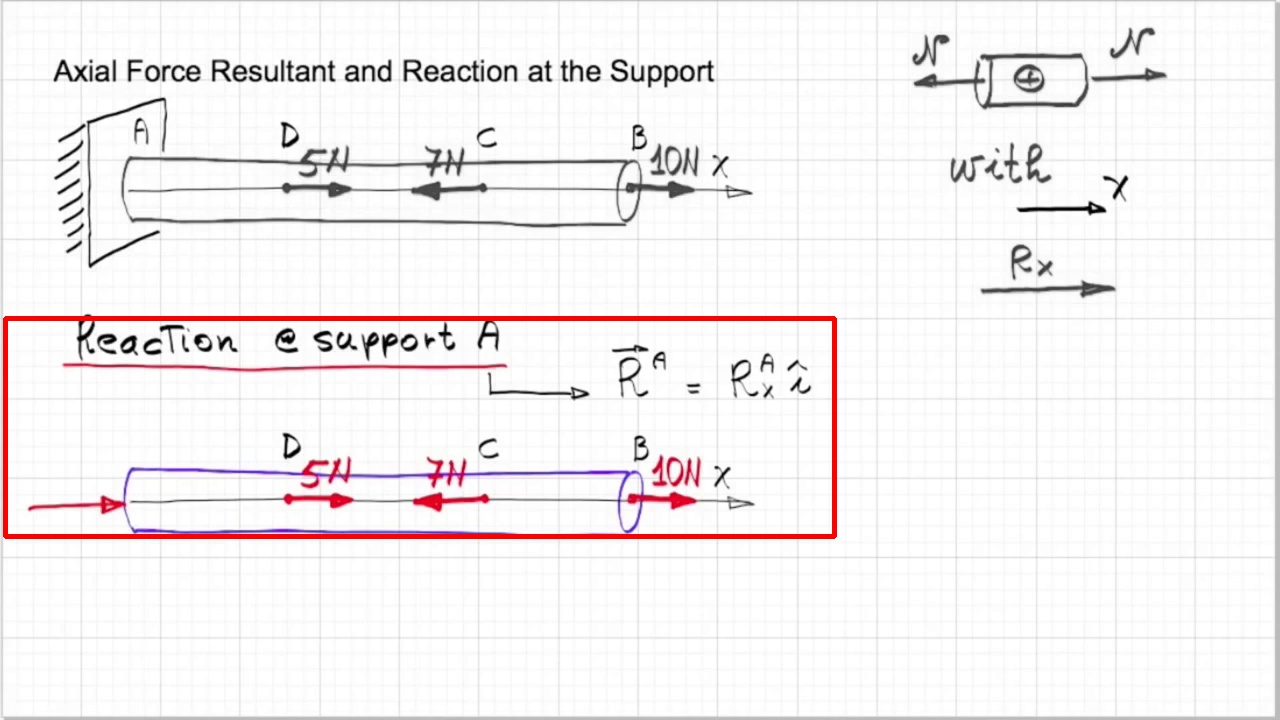 Axial Force Resultant and Reaction at the Support
A D 5N 7N C B 10N X
N N
with
X
Rx
Reaction @ support A
R^A = R_x^A î
D 5N 7N C B 10N X